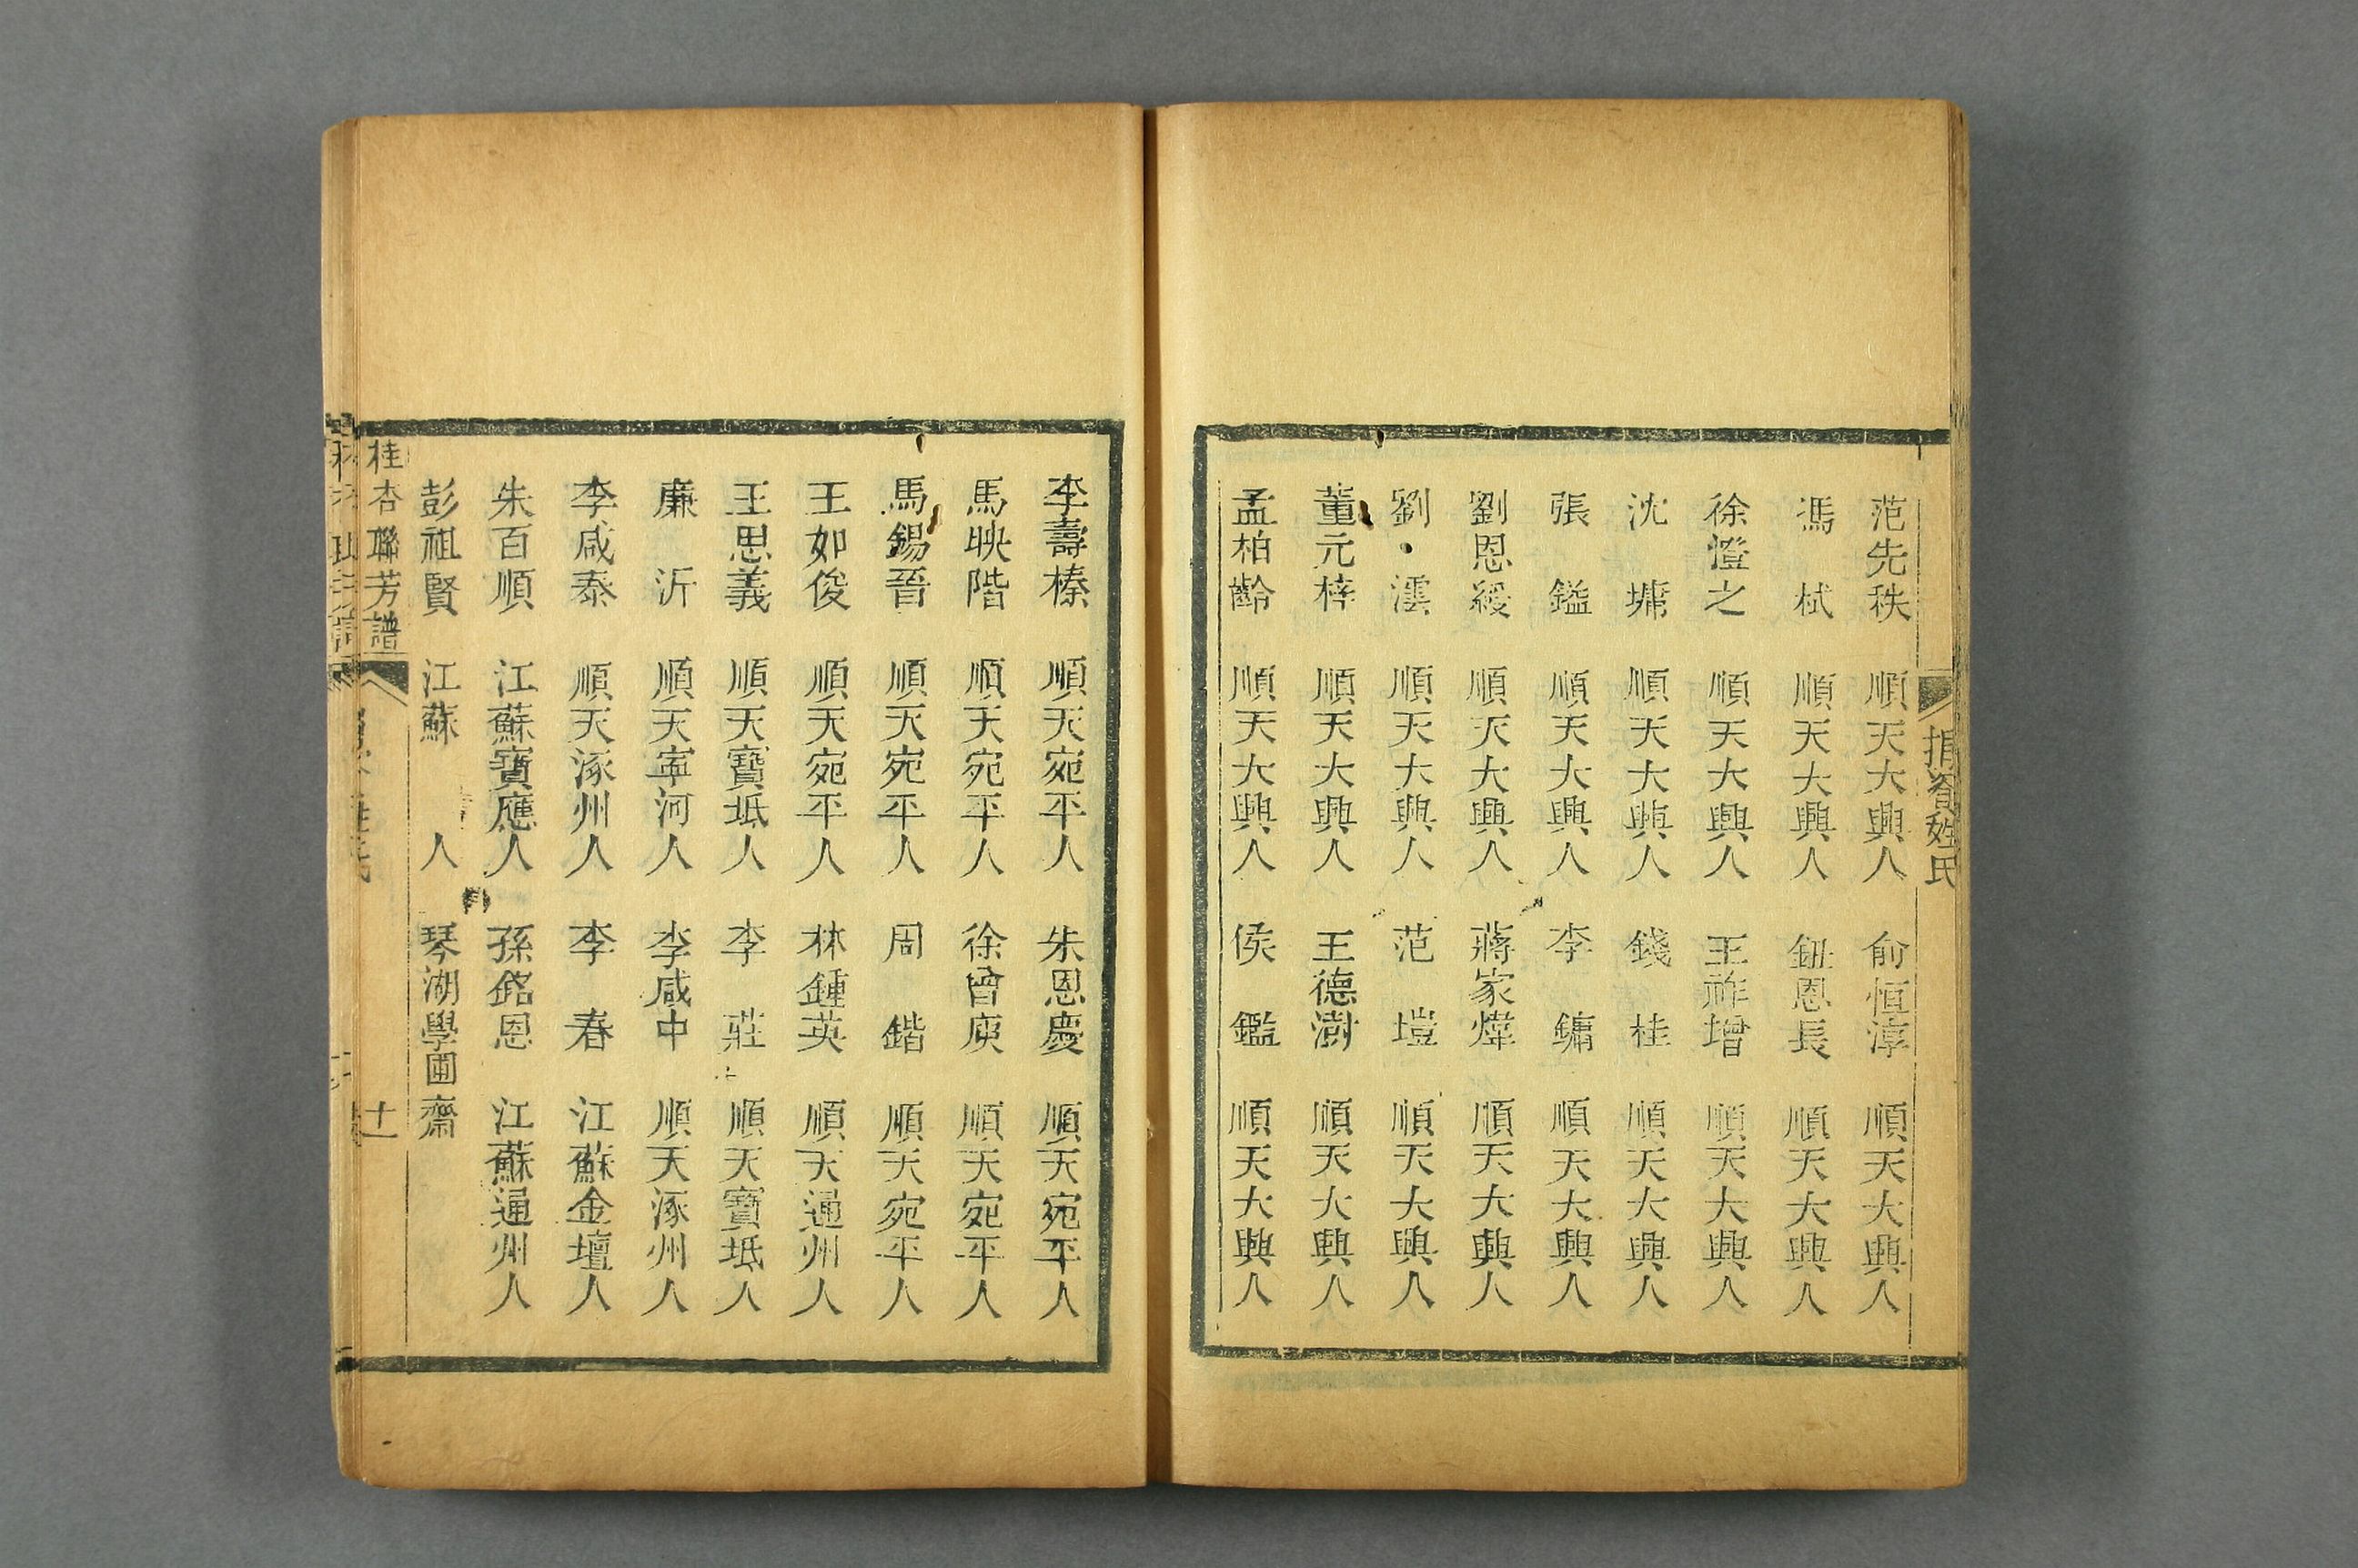 捐資姓氏
范先秩 順天大興人 俞恒淳 順天大興人
馮 栻 順天大興人 鈕恩長 順天大興人
徐燈之 順天大興人 王祚增 順天大興人
沈 墉 順天大興人 錢 桂 順天大興人
張 鎰 順天大興人 李 鏞 順天大興人
劉恩綬 順天大興人 蔣家煒 順天大興人
劉 澐 順天大興人 范 塏 順天大興人
董元梓 順天大興人 王德澍 順天大興人
孟柏齡 順天大興人 侯 鑑 順天大興人
李壽榛 順天宛平人 朱恩慶 順天宛平人
馬映階 順天宛平人 徐曾庾 順天宛平人
馬錫晉 順天宛平人 周 鍇 順天宛平人
王如俊 順天宛平人 林鍾英 順天通州人
王思義 順天寶坻人 李 莊 順天寶坻人
廉 沂 順天寧河人 李咸中 順天涿州人
李咸泰 順天涿州人 李 春 江蘇金壇人
朱百順 江蘇寶應人 孫銘恩 江蘇通州人
彭祖賢 江蘇 人 琴湖學圃齋
桂杏聯芳譜 十一